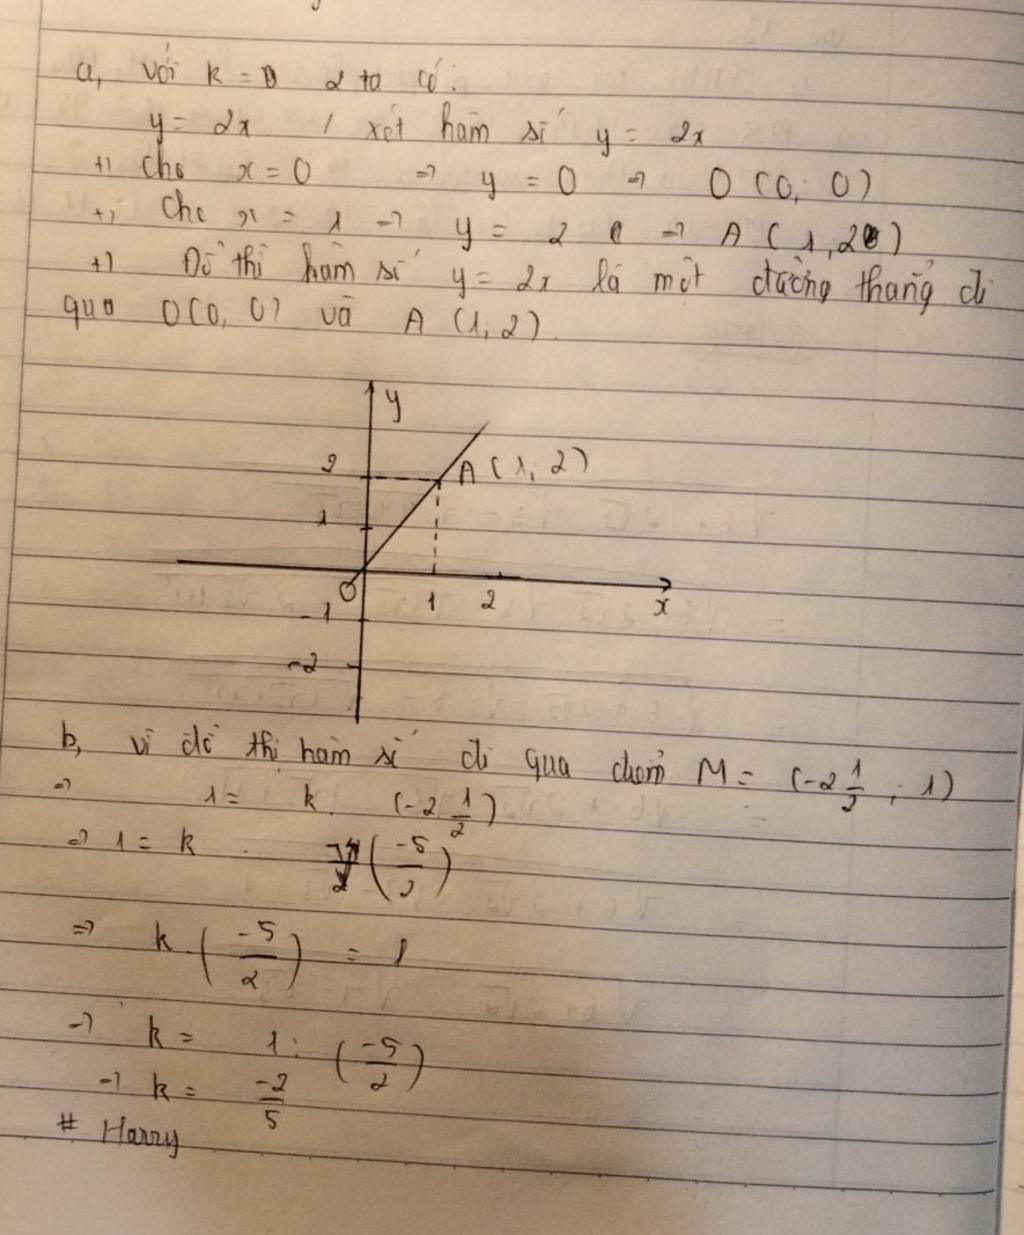 a, với k = 2 ta có:
y = 2x / xét hàm số y = 2x
+) Cho x = 0 => y = 0 => O (0; 0)
+) Cho x = 1 => y = 2 => A (1, 2)
+) Đồ thị hàm số y = 2x là một đường thẳng đi
qua O(0; 0) và A (1, 2).
y
2
A (1; 2)
1
O
1
2
x
-1
-2
b, vì đồ thị hàm số đi qua điểm M = (-2 1/2 ; 1)
=> 1 = k. (-2 1/2)
=> 1 = k . (-5/2)
=> k . (-5/2) = 1
=> k = 1 : (-5/2)
=> k = -2/5
# Harry